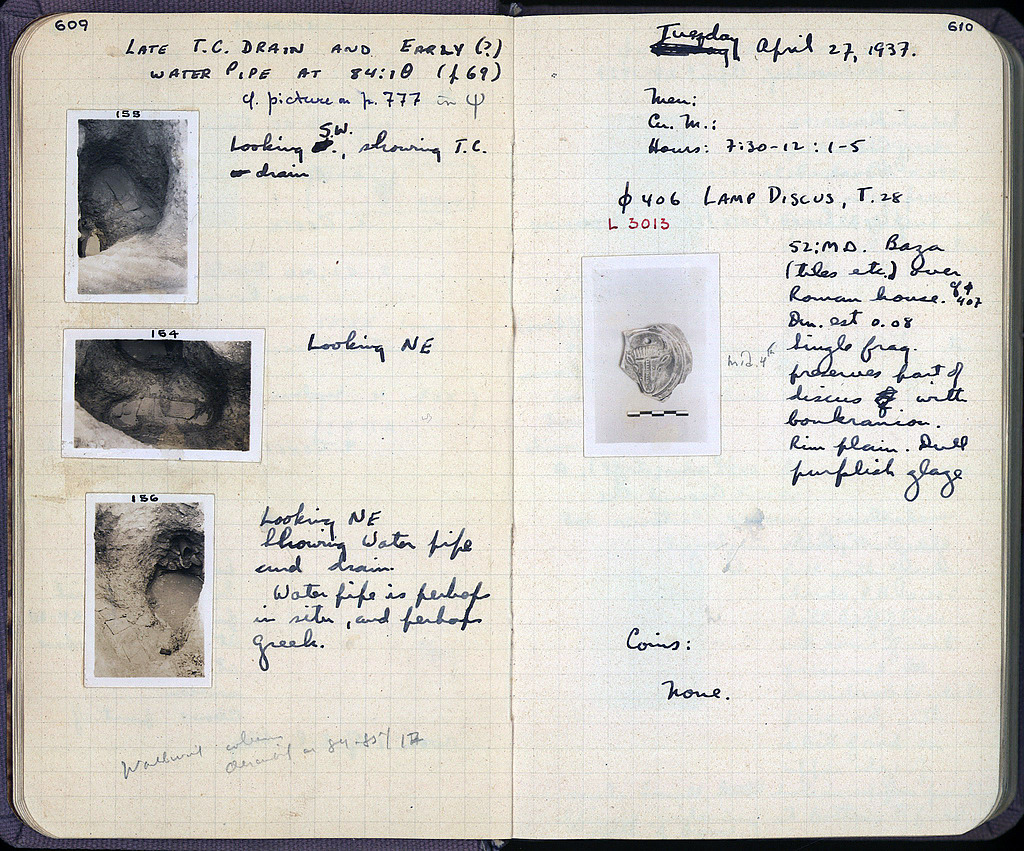 609
LATE T.C. DRAIN AND EARLY (?)
WATER PIPE AT 84:1Θ (f 69)
cf. picture on p. 777 in Ψ
153
Looking S.W., showing T.C.
drain
154
Looking NE
156
Looking NE
Showing Water pipe
and drain.
Water pipe is perhaps
in situ, and perhaps
Greek.
610
Tuesday April 27, 1937.
Men:
Cu. M.:
Hours: 7:30-12 : 1-5
φ 406 LAMP DISCUS, T. 28
L 3013
52:MΔ. Baza
(tiles etc.) over
Roman house. cf φ 407
Dm. est 0.08
Single frag.
preserves part of
discus with
boukranion.
Rim plain. Dull
purplish glaze
mid. 4th
Coins:
None.